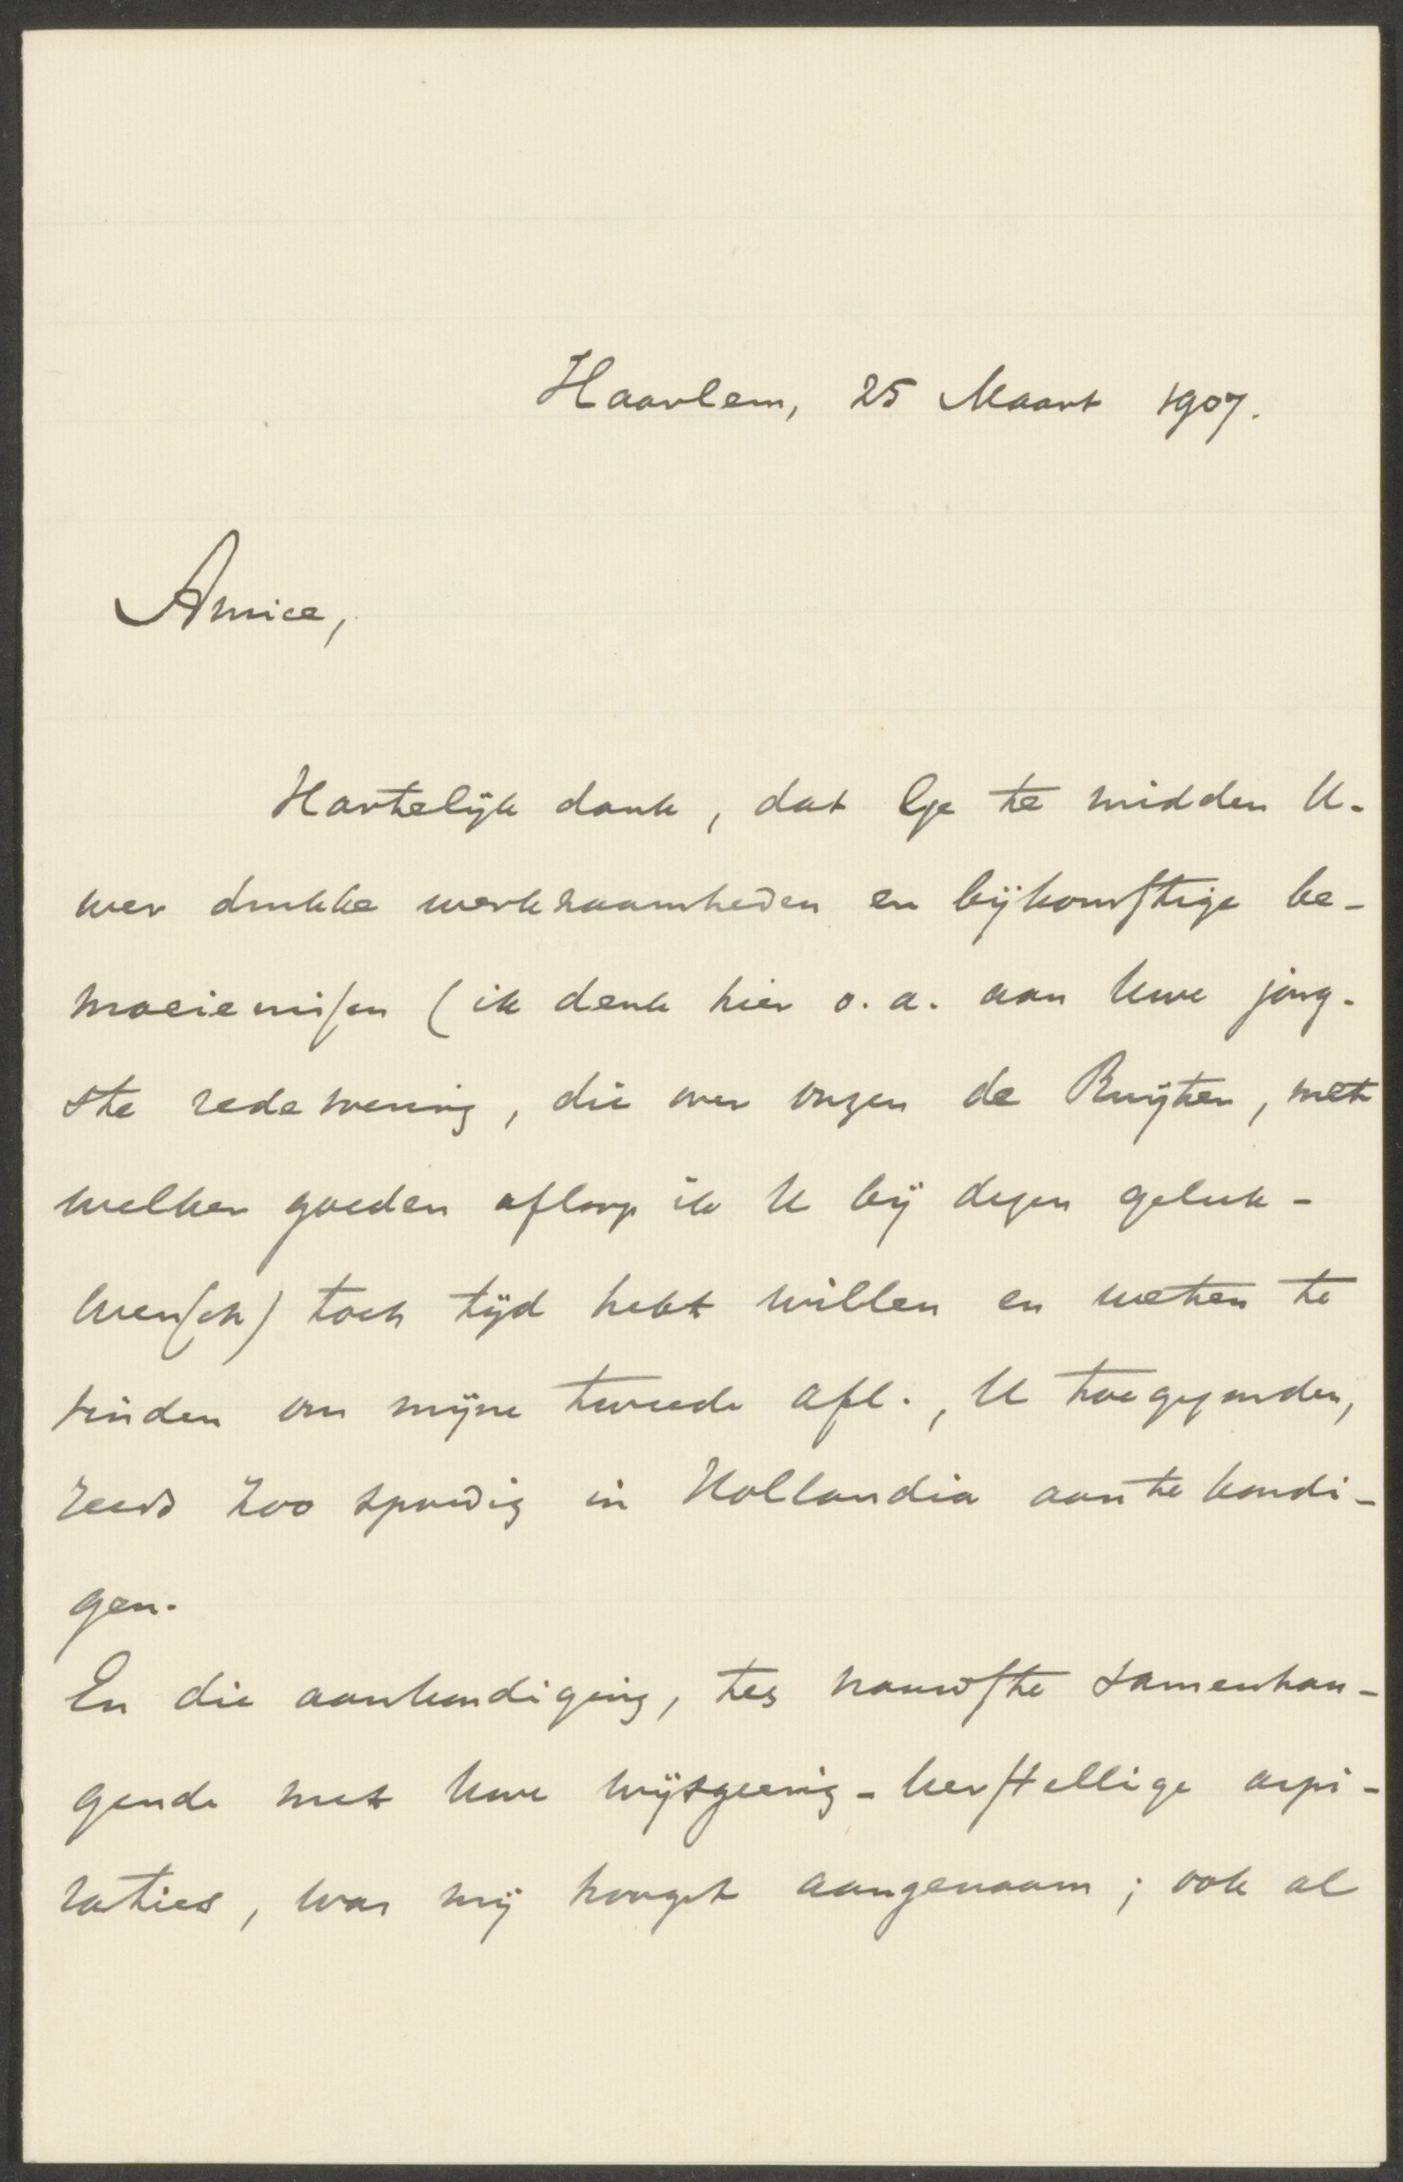 Haarlem, 25 Maart 1907.
Amice,
Hartelijk dank, dat Ge te midden U-
wer drukke werkzaamheden en bijkomstige be-
moeienissen (ik denk hier o.a. aan Uwe jong-
ste redevoering, die over onzen de Ruijter, met
welker goeden afloop ik U bij dezen geluk-
wensch) toch tijd hebt willen en weten te
vinden om mijne tweede afl., U toegezonden,
reeds zoo spoedig in Hollandia aan te kondi-
gen.
En die aankondiging, ten nauwste samenhan-
gende met Uwe wijsgeerig-herstellige aspi-
raties, was mij hoogst aangenaam; ook al